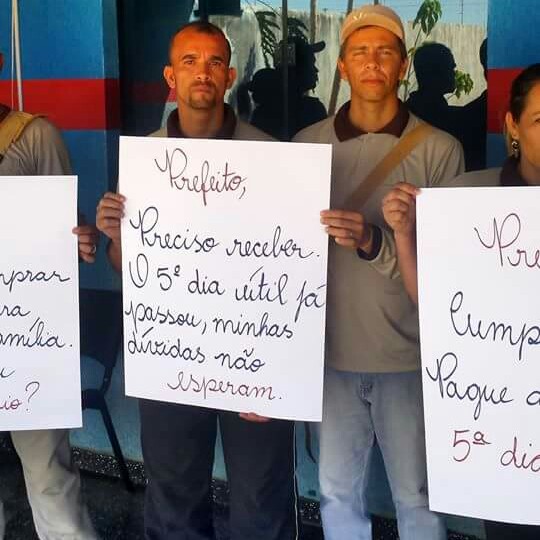 mprar
ra
amília.
u
io?
Prefeito,
Preciso receber.
O 5º dia útil já
passou, minhas
dívidas não
esperam.
Pre
Cump
Pague a
5ª dia